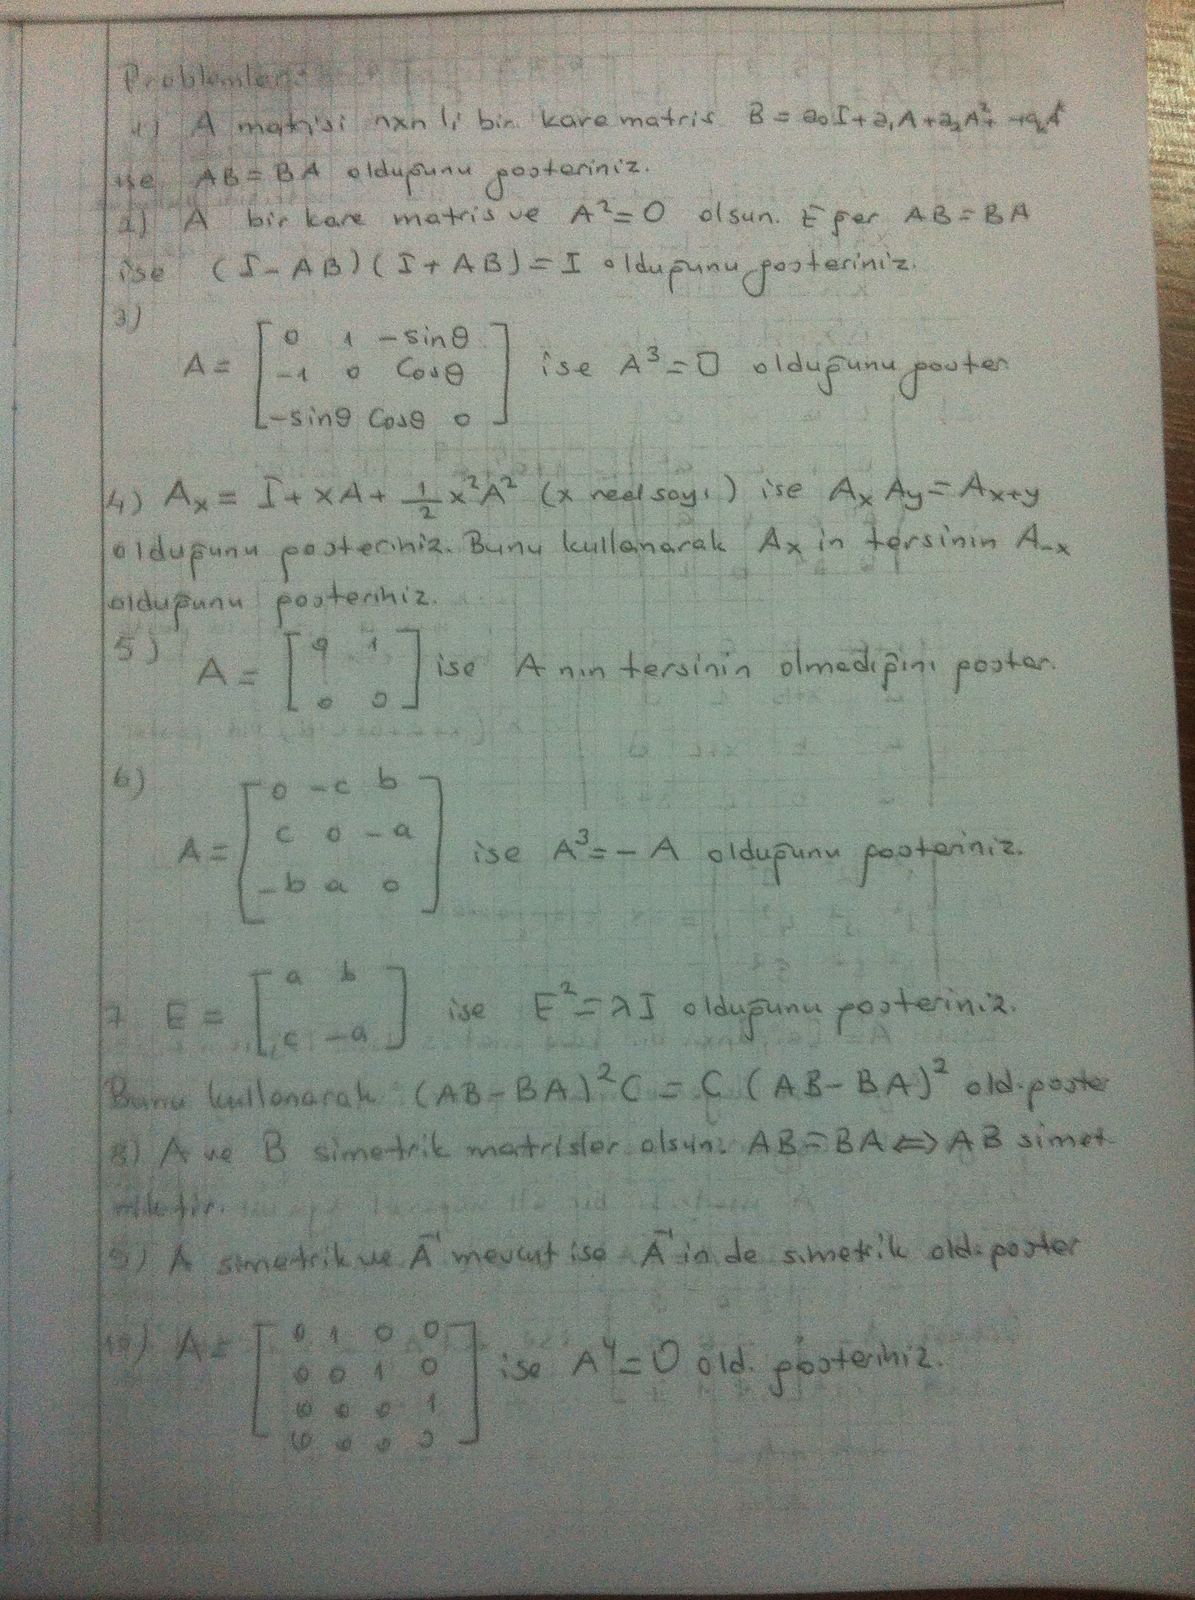 Problemler:
1) A matrisi nxn li bir kare matris B = a₀I + a₁A + a₂A² +
ise AB = BA olduğunu gösteriniz.
2) A bir kare matris ve A² = 0 olsun. Eğer AB = BA
ise (I - AB)(I + AB) = I olduğunu gösteriniz.
3)
0 1 -sinθ
A = -1 0 Cosθ ise A³ = 0 olduğunu göster
-sinθ Cosθ 0
4) Aₓ = I + xA + 1/2 x²A² (x reel sayı) ise Aₓ Ay = Aₓ₊y
olduğunu gösteriniz. Bunu kullanarak Aₓ in tersinin A₋ₓ
olduğunu gösteriniz.
5)
1
A = ise A nın tersinin olmadığını göster.
0 0
6)
0 -c b
c 0 -a
A = ise A³ = -A olduğunu gösteriniz.
-b a 0
a b
7 E = ise E² = λI olduğunu gösteriniz.
c -a
Bunu kullanarak (AB - BA)²C = C (AB - BA)² old. göster
8) A ve B simetrik matrisler olsun. AB = BA ⇔ AB simet-
riktir.
9) A simetrik ve A⁻¹ mevcut ise A⁻¹ in de simetrik old. göster
10) A = 0 1 0 0
0 0 1 0 ise A⁴ = 0 old. gösteriniz.
0 0 0 1
0 0 0 0